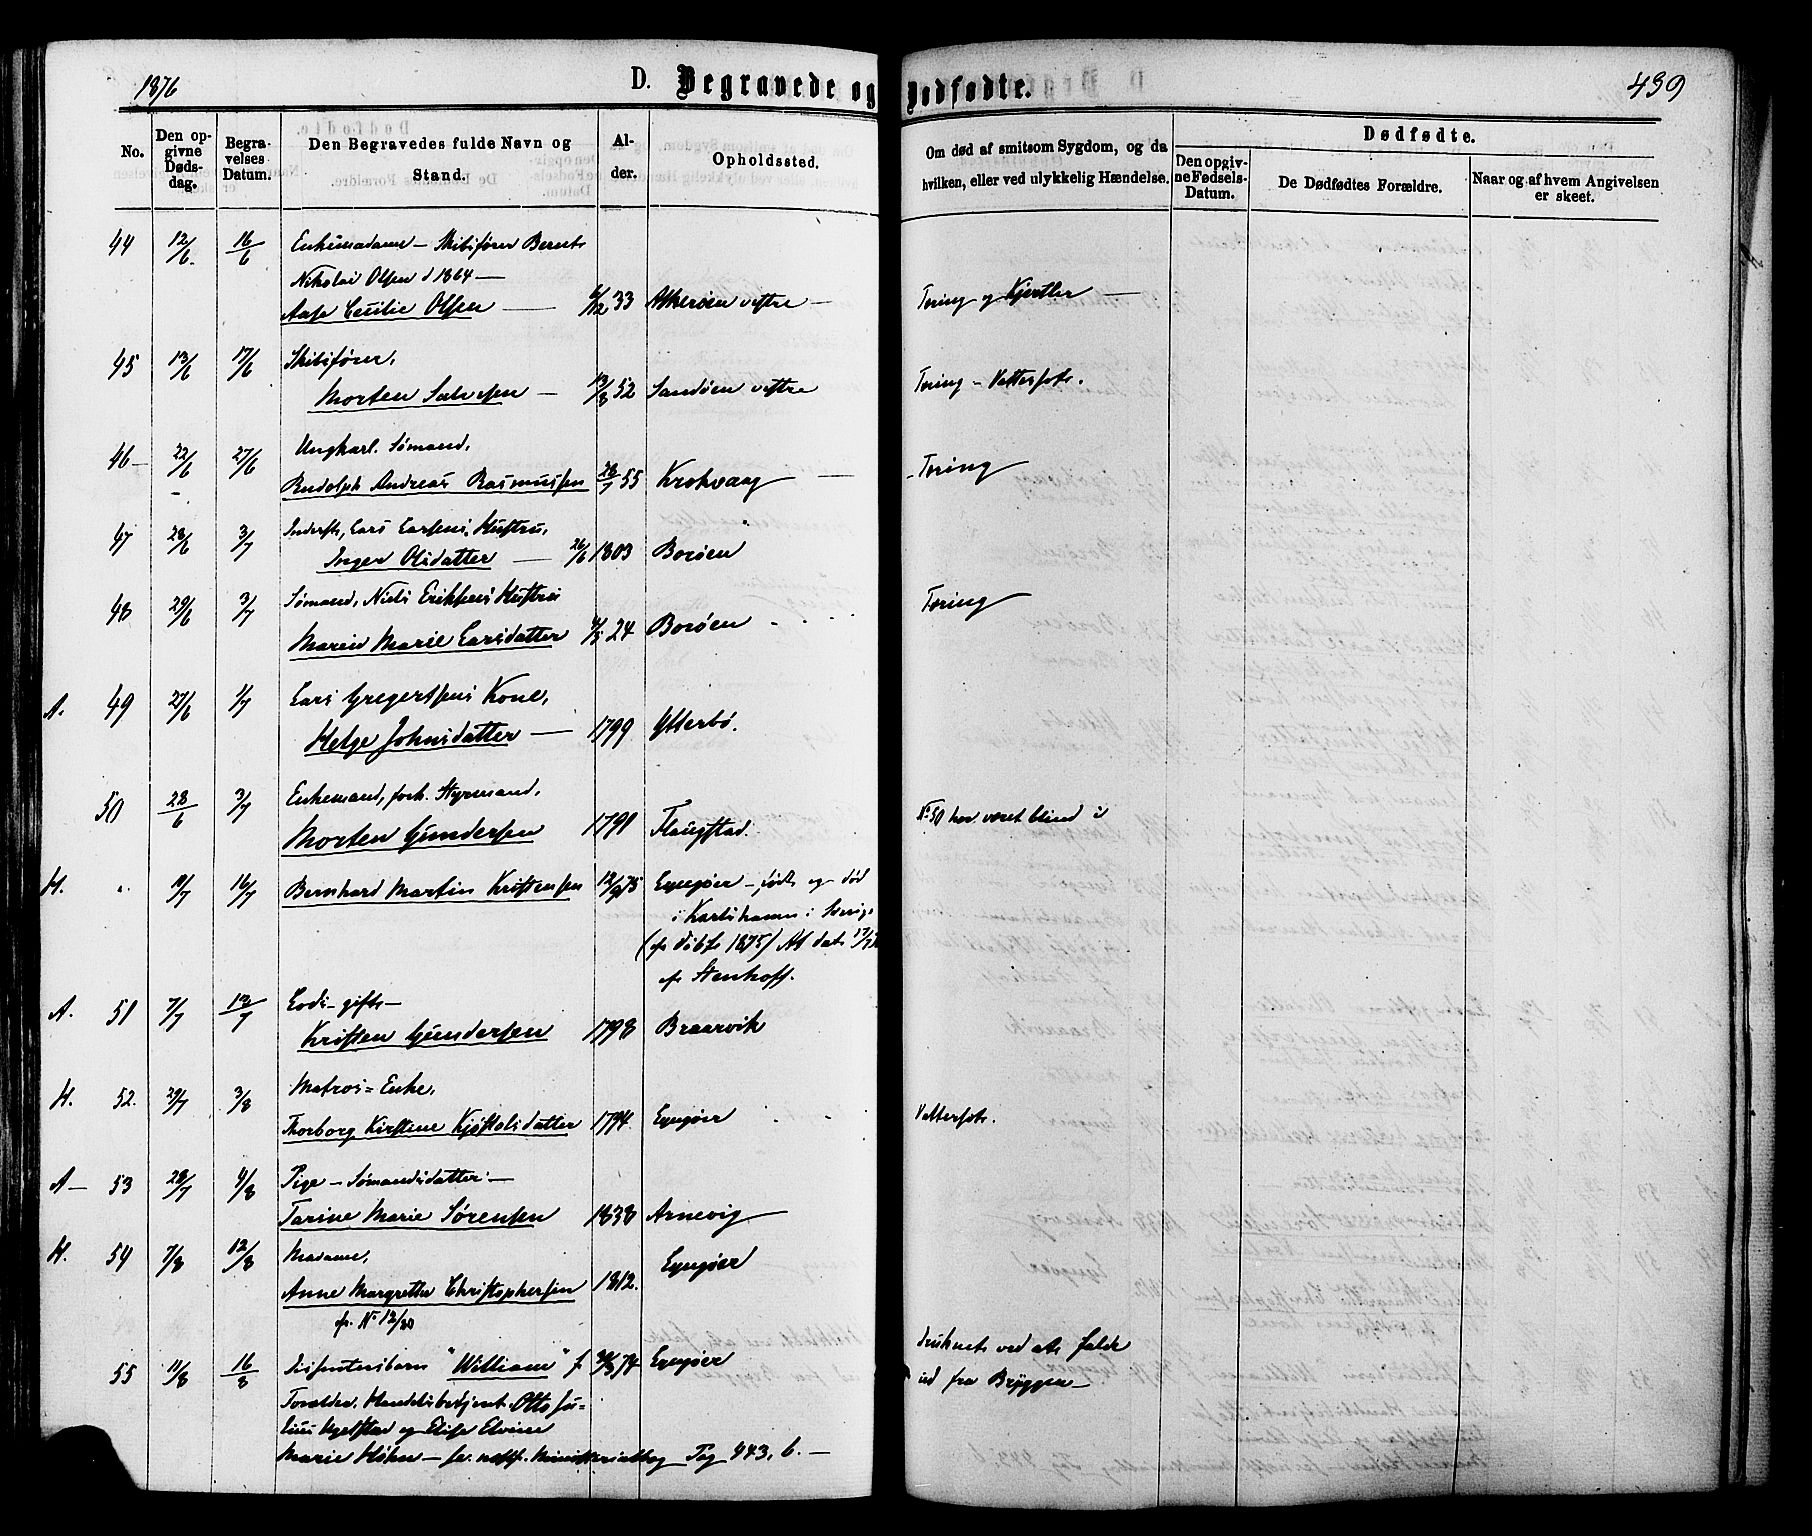 1876
D. Begravede og Dødfødte.
439
No.
Den opgivne Dødsdag.
Begravelses Datum.
Den Begravedes fulde Navn og Stand.
Alder.
Opholdssted.
Om død af smitsom Sygdom, og da hvilken, eller ved ulykkelig Hændelse.
Dødfødte.
Den opgivne Fødsels-Datum.
De Dødfødtes Forældre.
Naar og af hvem Angivelsen er skeet.
44 12/6. 16/6 Enkemadame – Skibsfører Bernt
Nikolai Olsen d 1864 —
Aase Cecilie Olsen — 33 Askerøen vestre — Tæring og Kjertler —
45 13/6 17/6 Skibsfører,
Morten Salvesen — 13/8 52 Sandøen vestre Tæring –
46 – 22/6 27/6 Ungkarl. Sømand,
Rudolph Andreas Rasmussen 28/7 55 Krokvaag — Tæring
47 28/6 3/7 Inderst, Lars Larsens Hustru,
Inger Olsdatter — 26/6 1803 Borøen
48 29/6 3/7 Sømand, Niels Eriksens Hustru
Maren Marie Larsdatter 4/5 24 Borøen Tæring
A. 49 27/6 1/7 Lars Gregertsens Kone,
Helge Johnsdatter — 1799 Ytterbø.
50 28/6 3/7 Enkemand, forh. Styrmand,
Morten Gundersen 1791 Flaugstad. No 50 har været blind i
H. " 11/7 16/7 Bernhard Martin Kristensen 12/9 75 Eyngøer – født og død
i Karlshamn i Sverig
(cfr døbte 1875) At dat 17/7
cfr Stenhoff.
A. 51 7/7 12/7 Lods – gift –
Kristen Gundersen 1798 Braarvik
H. 52. 29/7 3/8 Matros = Enke,
Thorborg Kirstine Kjøstolsdatter 1794. Eyngøer Vattersot.
A – 53 28/7 4/8 Pige – Sømandsdatter –
Tarine Marie Sørensen 1838 Arnevig
H. 54 7/8 12/8 Madame,
Anne Margrethe Christophersen 1812. Eyngøer
cfr. No 12/80
55 11/8 16/8 Dissenterbarn "William" f. 74 Eyngøer druknet ved at falde
ud fra Bryggen –
Forældre, Handelsbetjent Otto Ju=
lius og Elise Elvine
Marie Høhn – Pag 443, b. –